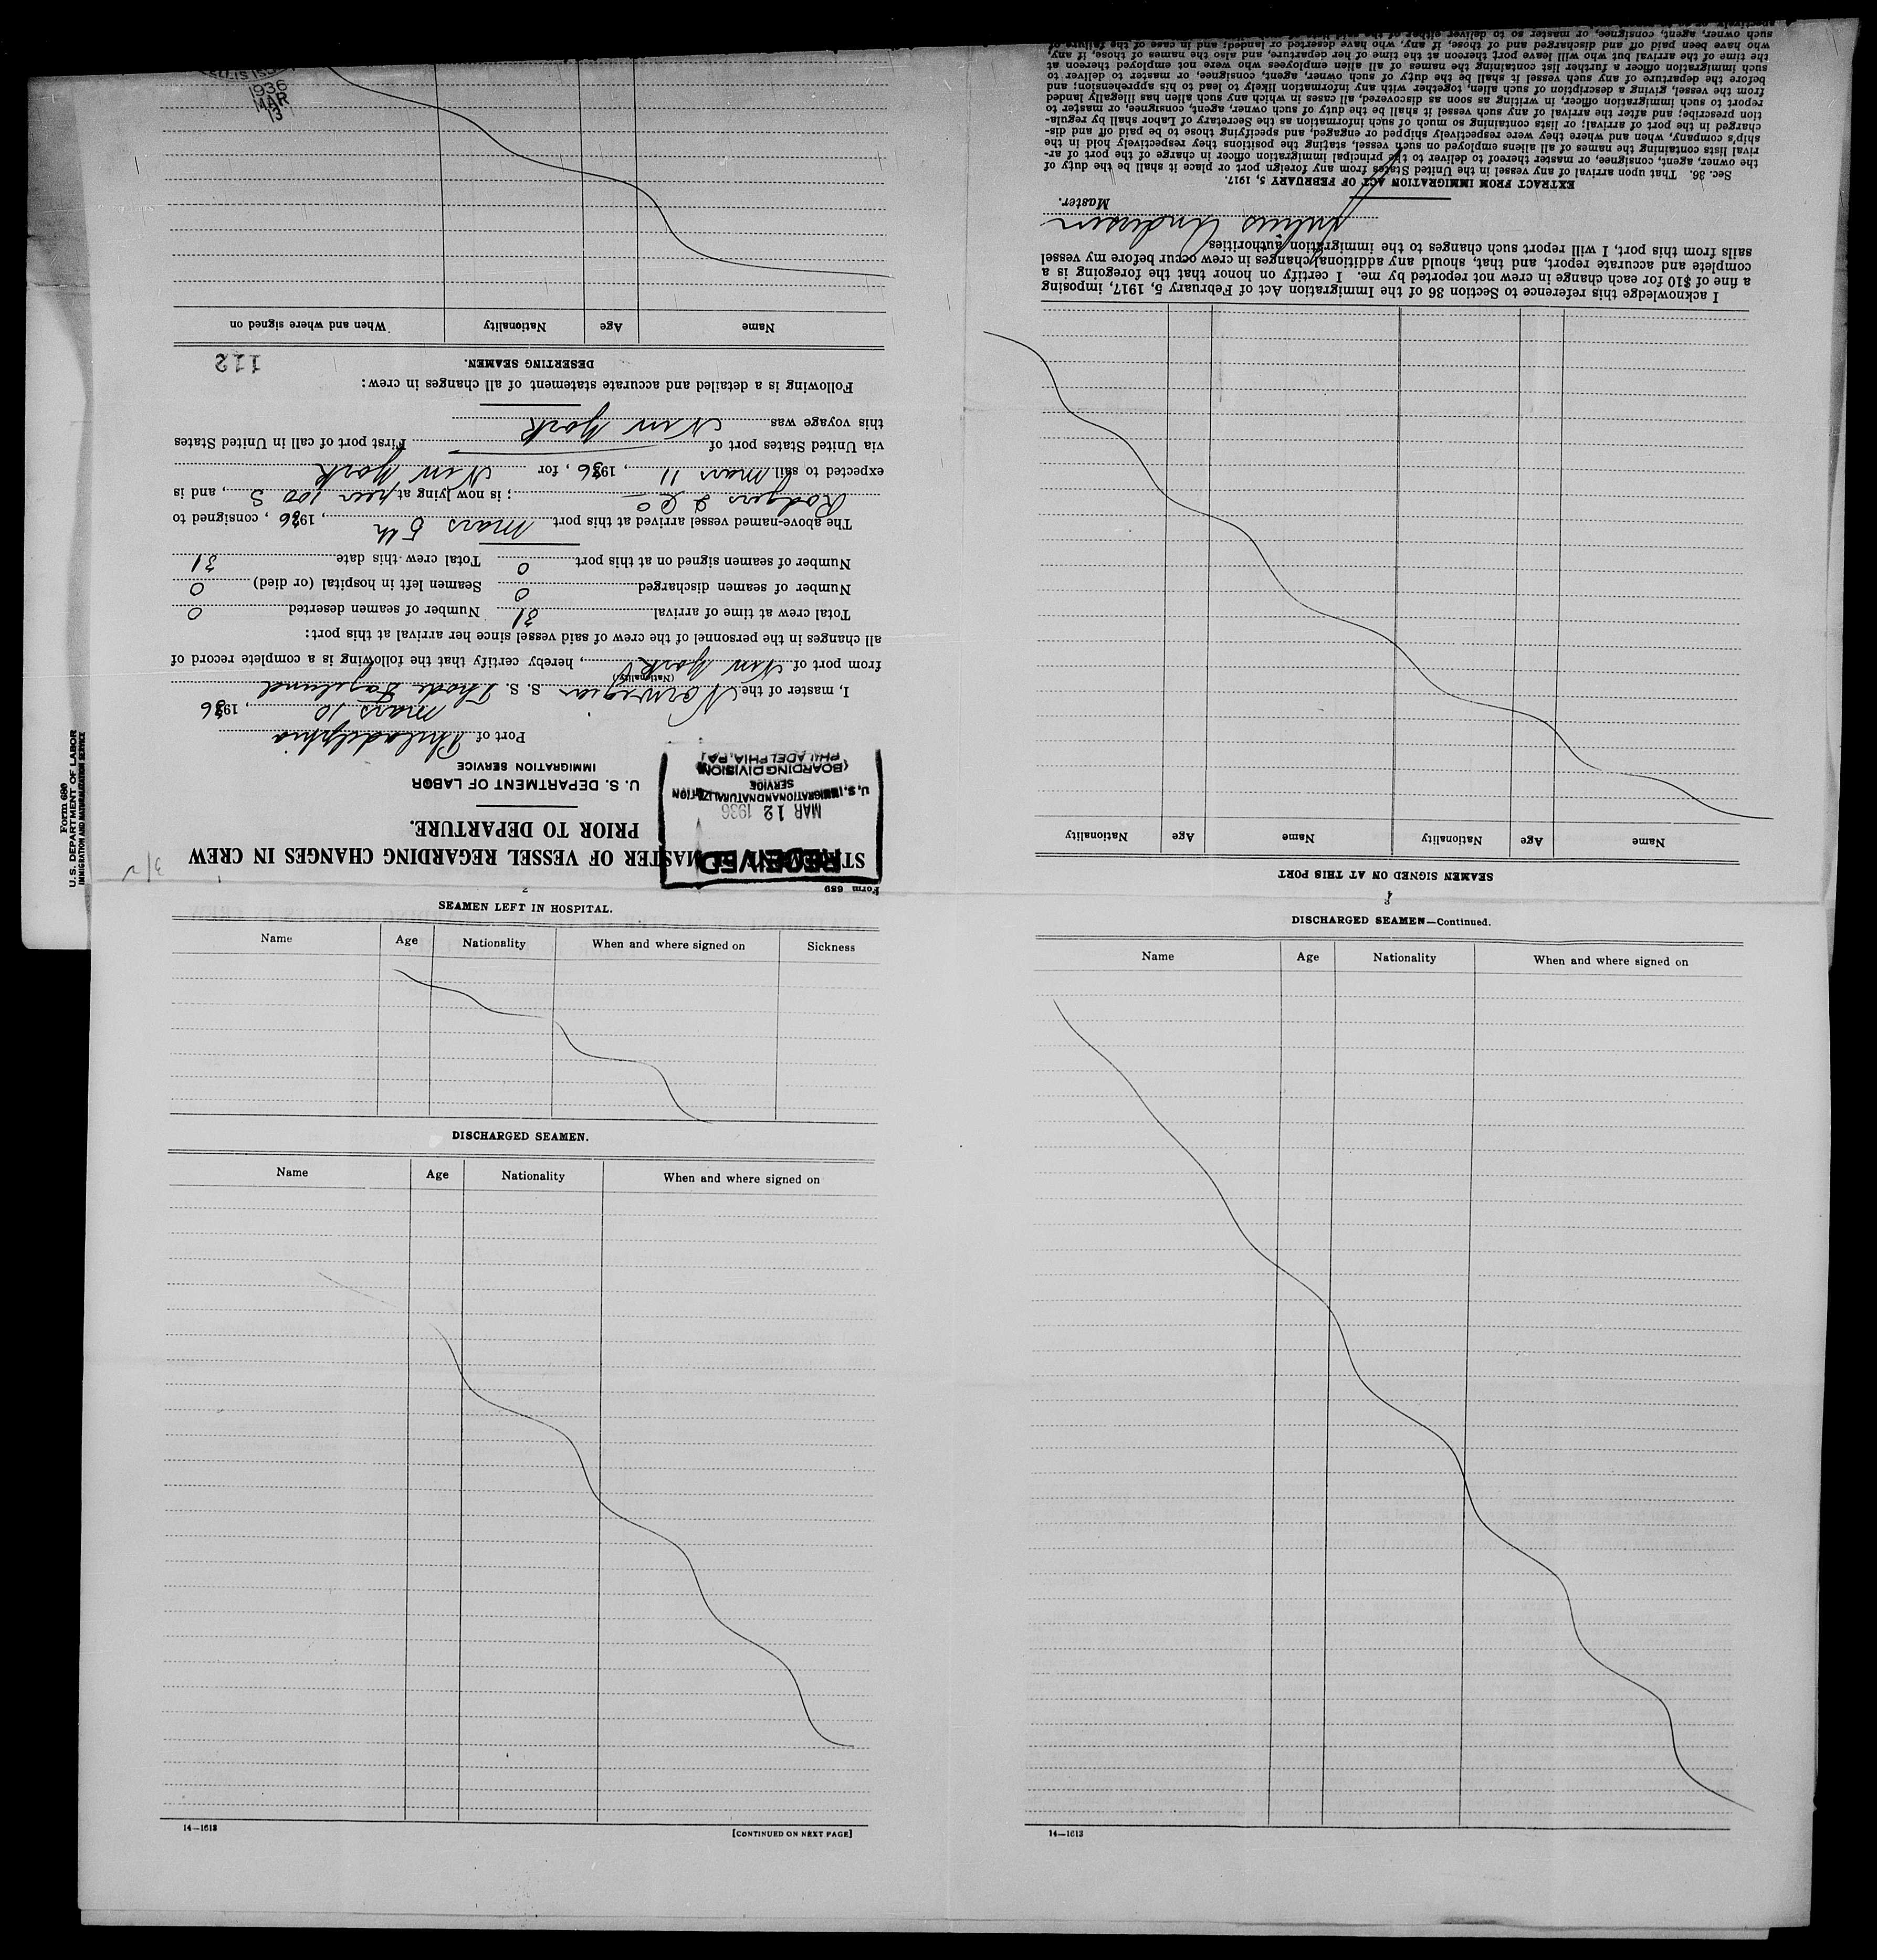 Form 689
STATEMENT OF MASTER OF VESSEL REGARDING CHANGES IN CREW
PRIOR TO DEPARTURE.
RECEIVED
MAR 12 1936
U.S. IMMIGRATION AND NATURALIZATION
SERVICE
(BOARDING DIVISION)
PHILADELPHIA, PA.
U. S. DEPARTMENT OF LABOR
IMMIGRATION SERVICE
Port of Philadelphia
mars 10, 1936
I, master of the Norwegian S. S. Thode Fagelund
(Nationality)
from port of New York, hereby certify that the following is a complete record of
all changes in the personnel of the crew of said vessel since her arrival at this port:
Total crew at time of arrival 31 Number of seamen deserted 0
Number of seamen discharged 0 Seamen left in hospital (or died) 0
Number of seamen signed on at this port 0 Total crew this date 31
The above-named vessel arrived at this port mars 5th, 1936, consigned to
Rodgers & Co; is now lying at peer 100 S, and is
expected to sail mars 11, 1936, for New York
via United States port of First port of call in United States
this voyage was New York
Following is a detailed and accurate statement of all changes in crew:
DESERTING SEAMEN.
112
Name Age Nationality When and where signed on
13
MAR
1936
ELLIS
Form 680
U.S. DEPARTMENT OF LABOR
IMMIGRATION AND NATURALIZATION SERVICE
2
SEAMEN LEFT IN HOSPITAL.
Name Age Nationality When and where signed on Sickness
DISCHARGED SEAMEN.
Name Age Nationality When and where signed on
14—1613 [CONTINUED ON NEXT PAGE]
DISCHARGED SEAMEN—Continued.
Name Age Nationality When and where signed on
14—1613
SEAMEN SIGNED ON AT THIS PORT
Name Age Nationality Name Age Nationality
I acknowledge this reference to Section 36 of the Immigration Act of February 5, 1917, imposing
a fine of $10 for each change in crew not reported by me. I certify on honor that the foregoing is a
complete and accurate report, and that, should any additional changes in crew occur before my vessel
sails from this port, I will report such changes to the immigration authorities.
Julius Andersen
Master.
EXTRACT FROM IMMIGRATION ACT OF FEBRUARY 5, 1917.
Sec. 36. That upon arrival of any vessel in the United States from any foreign port or place it shall be the duty of
the owner, agent, consignee, or master thereof to deliver to the principal immigration officer in charge of the port of ar-
rival lists containing the names of all aliens employed on such vessel, stating the positions they respectively hold in the
ship's company, when and where they were respectively shipped or engaged, and specifying those to be paid off and dis-
charged in the port of arrival; or lists containing so much of such information as the Secretary of Labor shall by regula-
tion prescribe; and after the arrival of any such vessel it shall be the duty of such owner, agent, consignee, or master to
report to such immigration officer, in writing as soon as discovered, all cases in which any such alien has illegally landed
from the vessel, giving a description of such alien, together with any information likely to lead to his apprehension; and
before the departure of any such vessel it shall be the duty of such owner, agent, consignee, or master to deliver to
such immigration officer a further list containing the names of all alien employees who were not employed thereon at
the time of the arrival but who will leave port thereon at the time of her departure, and also the names of those, if any,
who have been paid off and discharged and of those, if any, who have deserted or landed; and in case of the failure of
such owner, agent, consignee, or master so to deliver either of the said lists